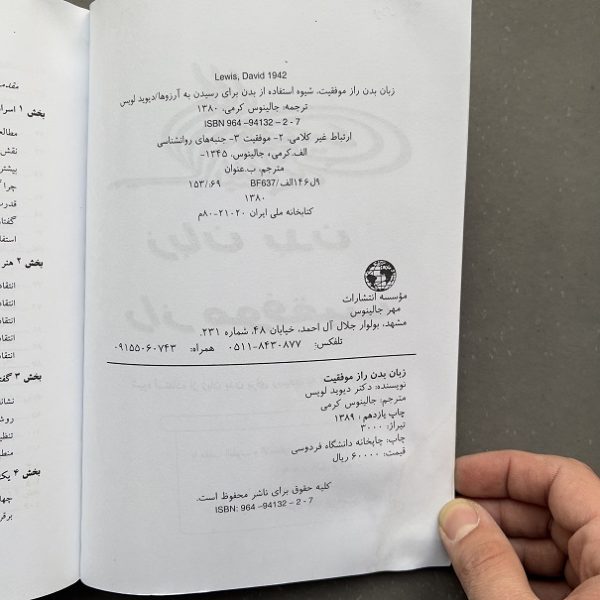 Lewis, David 1942
زبان بدن راز موفقیت. شیوه استفاده از بدن برای رسیدن به آرزوها/دیوید لویس
ترجمه: جالینوس کرمی. ۱۳۸۰
ISBN 964 –94132 – 2 - 7
ارتباط غیر کلامی. ۲- موفقیت ۳- جنبه‌های روانشناسی
الف.کرمی، جالینوس. ۱۳۴۵-
مترجم. ب.عنوان
۹ل۱۴۶الف/BF637 ۱۵۳/.۶۹
۱۳۸۰
کتابخانه ملی ایران ۲۱۰۲۰-۸۰م
مؤسسه انتشارات
مهر جالینوس
مشهد، بولوار جلال آل احمد، خیابان ۴۸، شماره ۲۳۱.
تلفکس: ۸۴۳۰۸۷۷-۰۵۱۱ همراه: ۰۹۱۵۵۰۶۰۷۴۳
زبان بدن راز موفقیت
نویسنده: دکتر دیوید لویس
مترجم: جالینوس کرمی
چاپ یازدهم، ۱۳۸۹
تیراژ: ۳۰۰۰
چاپ: چاپخانه دانشگاه فردوسی
قیمت: ۶۰۰۰۰ ریال
کلیه حقوق برای ناشر محفوظ است.
ISBN: 964 –94132 – 2 - 7
بخش ۱
نقش
چرا
بخش ۲ هنر
انتقاد
انتقاد
انتقاد
انتقاد
انتقاد
بخش ۳
بخش ۴